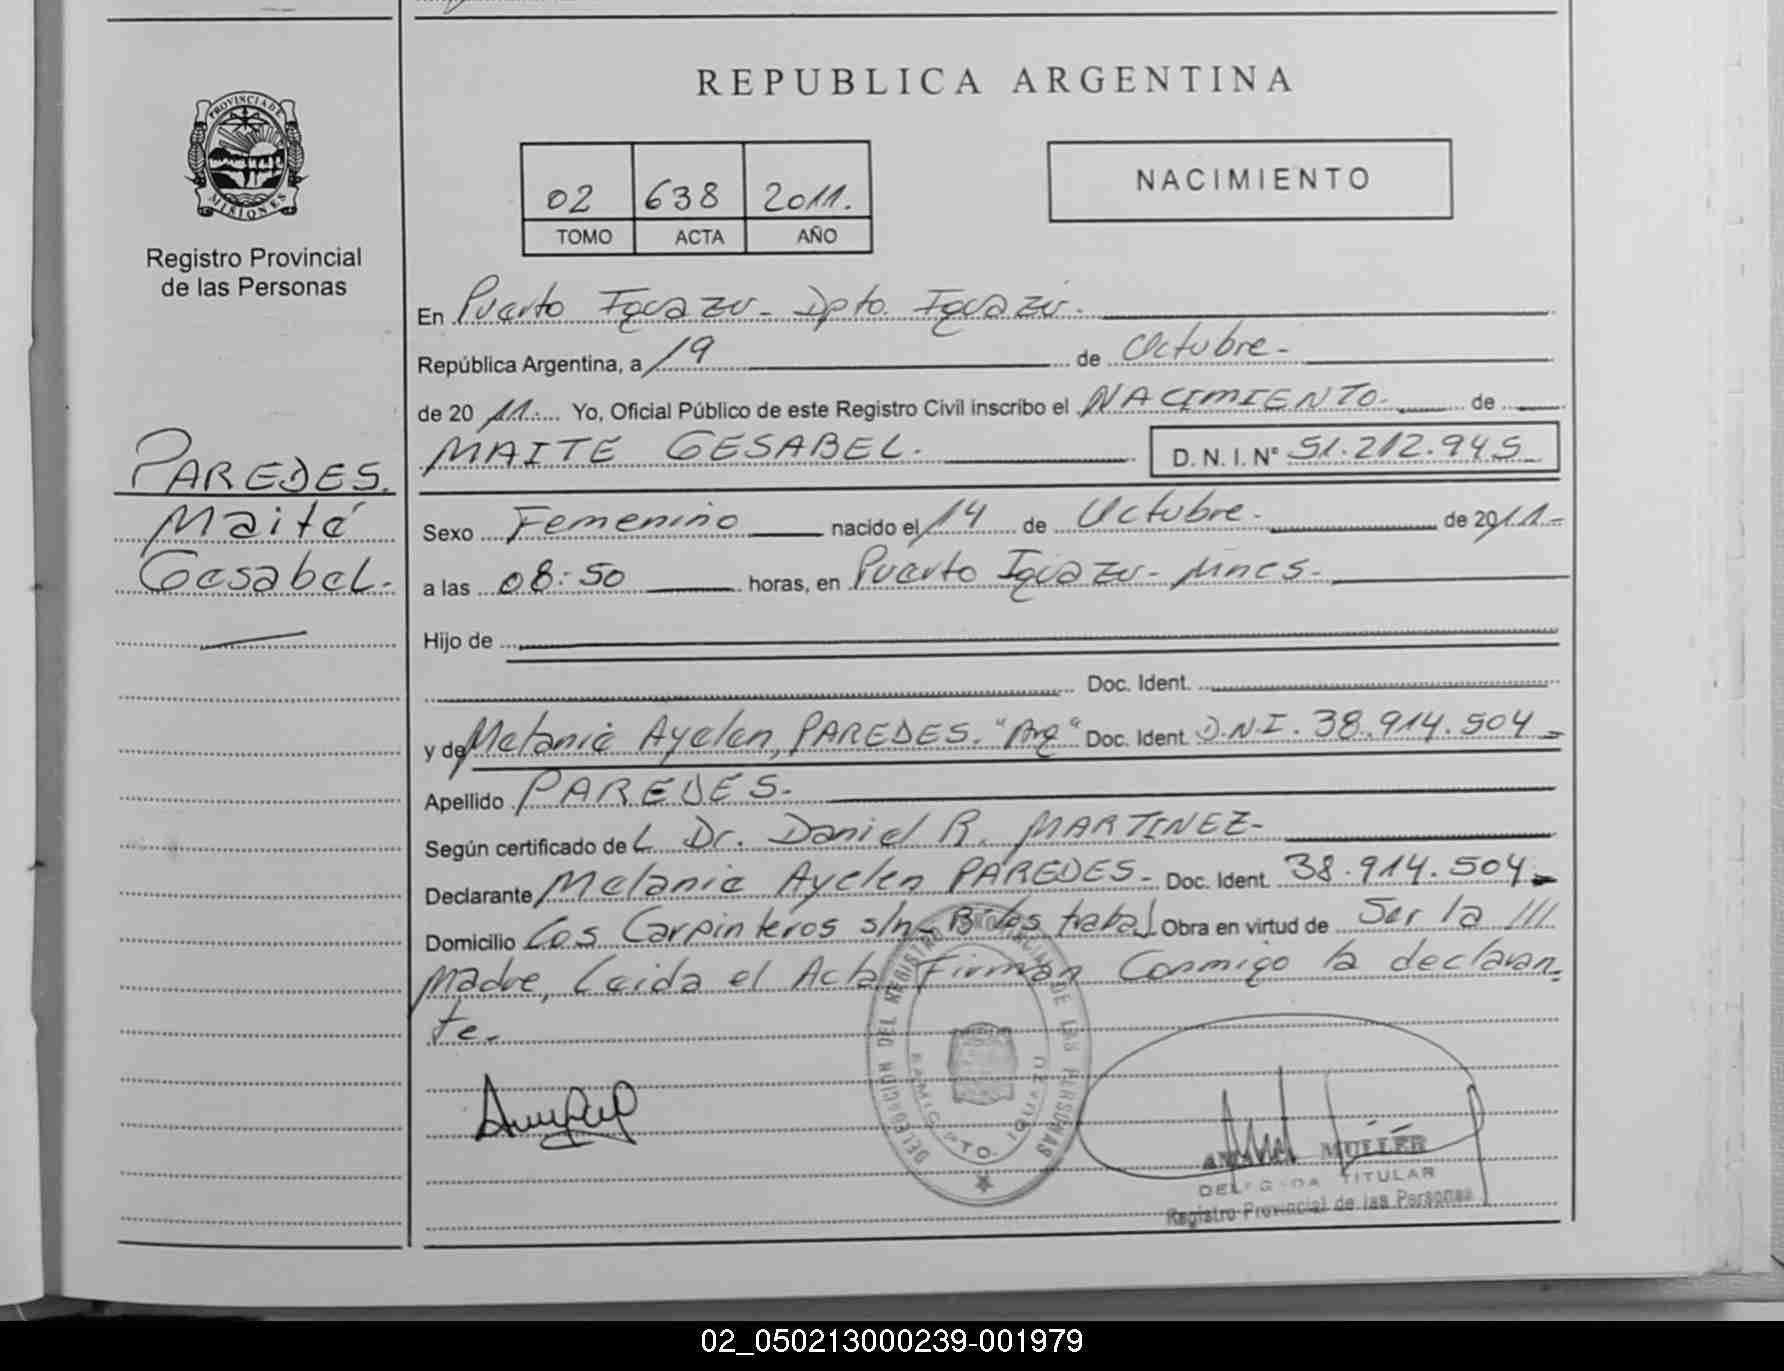 REPUBLICA ARGENTINA
PROVINCIA DE
MISIONES
Registro Provincial
de las Personas
02 638 2011.
TOMO ACTA AÑO
NACIMIENTO
En Puerto Iguazu - Dpto. Iguazú.
República Argentina, a 19 de Octubre -
de 20 11. Yo, Oficial Público de este Registro Civil inscribo el NACIMIENTO. de
MAITE GESABEL. D.N.I. N° 51.212.945
PAREDES.
Maité
Gesabel.
Sexo Femenino nacido el 14 de Octubre. de 2011-
a las 08:50 horas, en Puerto Iguazu - Mnes.
Hijo de
Doc. Ident.
y de Melanie Ayelen, PAREDES. "Arg" Doc. Ident. D.N.I. 38.914.504
Apellido PAREDES.
Según certificado de L Dr. Daniel R. MARTINEZ-
Declarante Melanie Ayelen PAREDES - Doc. Ident. 38.914.504
Domicilio Los Carpinteros s/n - B° los trabaj Obra en virtud de Ser la ///
Madre, Leida el Acta, Firman Conmigo la declaran
te.
DELEGACION DEL REGISTRO PROVINCIAL DE LAS PERSONAS
DPTO. IGUAZU
MULLER
DELEGADA TITULAR
Registro Provincial de las Personas
02_050213000239-001979